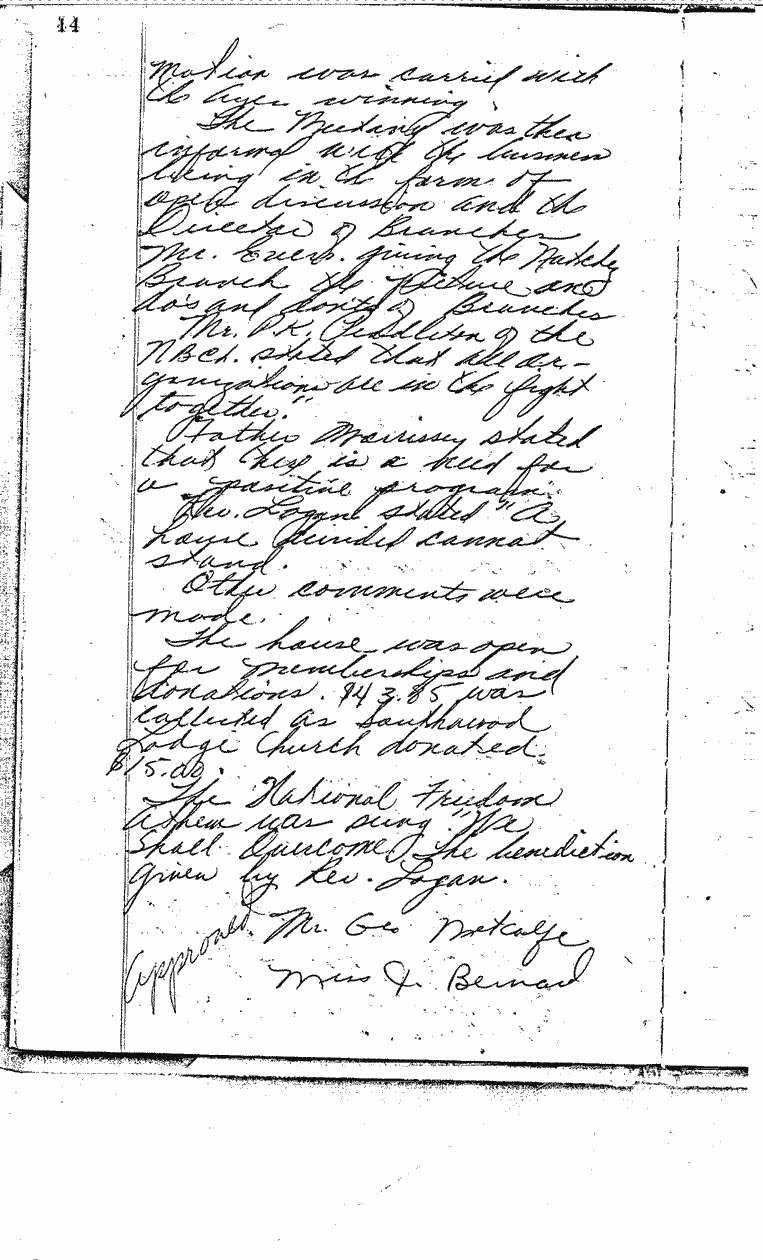 14
motion was carried with
the Ayes winning.
The Meeting was then
informal with the business
being in the form of
open discussion and the
Director of Branches
Mr. Evers. giving the Natchez
Branch the picture and
do's and donts of Branches
Mr. P.K. Pendleton of the
NBCL. stated that all or-
ganizations are in the fight
together."
Father Morrissey stated
that there is a need for
a positive program.
Rev. Logan stated "A
house divided cannot
stand.
Other comments were
made.
The house was open
for memberships and
donations. $43.85 was
collected as Southwood
Lodge Church donated
$15.00.
The National Freedom
Athem was sung "We
Shall Overcome). The benediction
given by Rev. Logan.
Approved. Mr. Geo Metcalfe
Miss J. Bernard